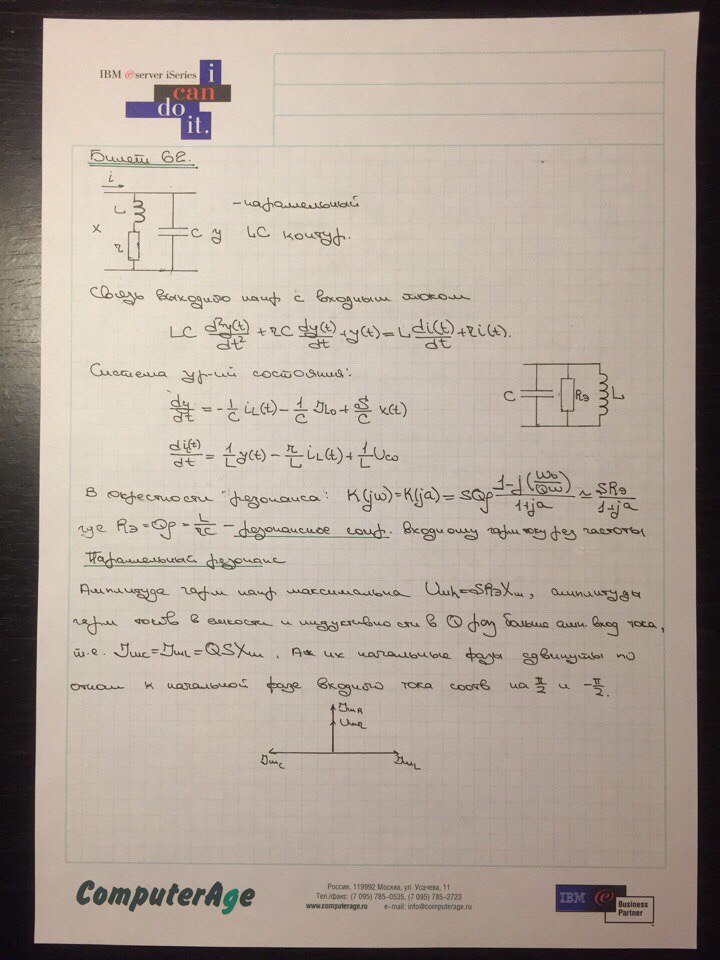 IBM e server iSeries
i
can
do
it.
Билет 62.
i
L
x
r
C y
-параллельный
LC контур.
Связь выходного напр с входным током
LC d²y(t)/dt² + rC dy(t)/dt + y(t) = L di(t)/dt + ri(t).
Система ур-ий состояния:
dy/dt = -1/C iL(t) - 1/C JL0 + S/C x(t)
C Rэ L
diL(t)/dt = 1/L y(t) - r/L iL(t) + 1/L Uc0
В окрестности резонанса: K(jω)=K(ja)=SQρ (1-j(ω0/Qω))/(1+ja) ≃ SRэ/(1+ja)
где Rэ=Qρ=L/rC - резонансное сопр. входному гарм току рез частоты
Параллельный резонанс
Амплитуда гарм напр максимальна Umh=SRэXm, амплитуды
гарм токов в емкости и индуктивности в Q раз больше амп. вход тока,
т.е. JmC=JmL=QSXm. А их начальные фазы сдвинуты по
отнош к начальной фазе входного тока соотв на π/2 и -π/2.
JmR
UmR
JmC JmL
ComputerAge
Россия, 119992 Москва, ул. Усачева, 11
Тел./факс. (7 095) 785-0535, (7 095) 785-2723
www.computerage.ru e-mail: info@computerage.ru
IBM e Business
Partner